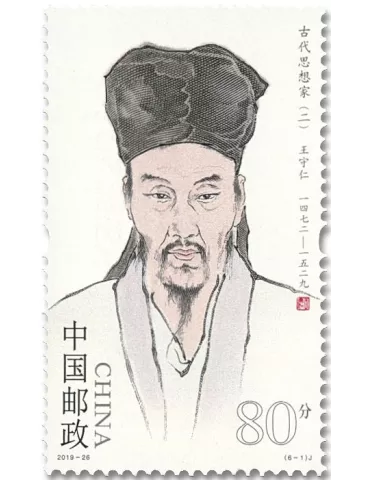 古代思想家（二） 王守仁 一四七二—一五二九
中国邮政
CHINA
80分
2019-26
(6-1)J